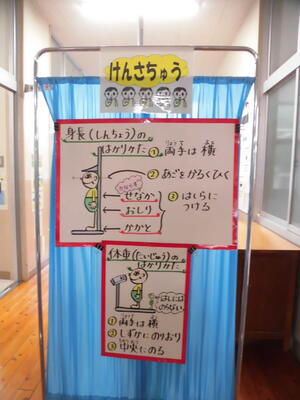 けんさちゅう
身長(しんちょう)の
はかりかた
① 両手は横
りょうて よこ
② あごをかるくひく
かならず
せなか
おしり
かかと
③ はしらに
つける
体重(たいじゅう)の
はかりかた
はしには
のらない。
① 両手は横
② しずかにのりおり
③ 中央にのる